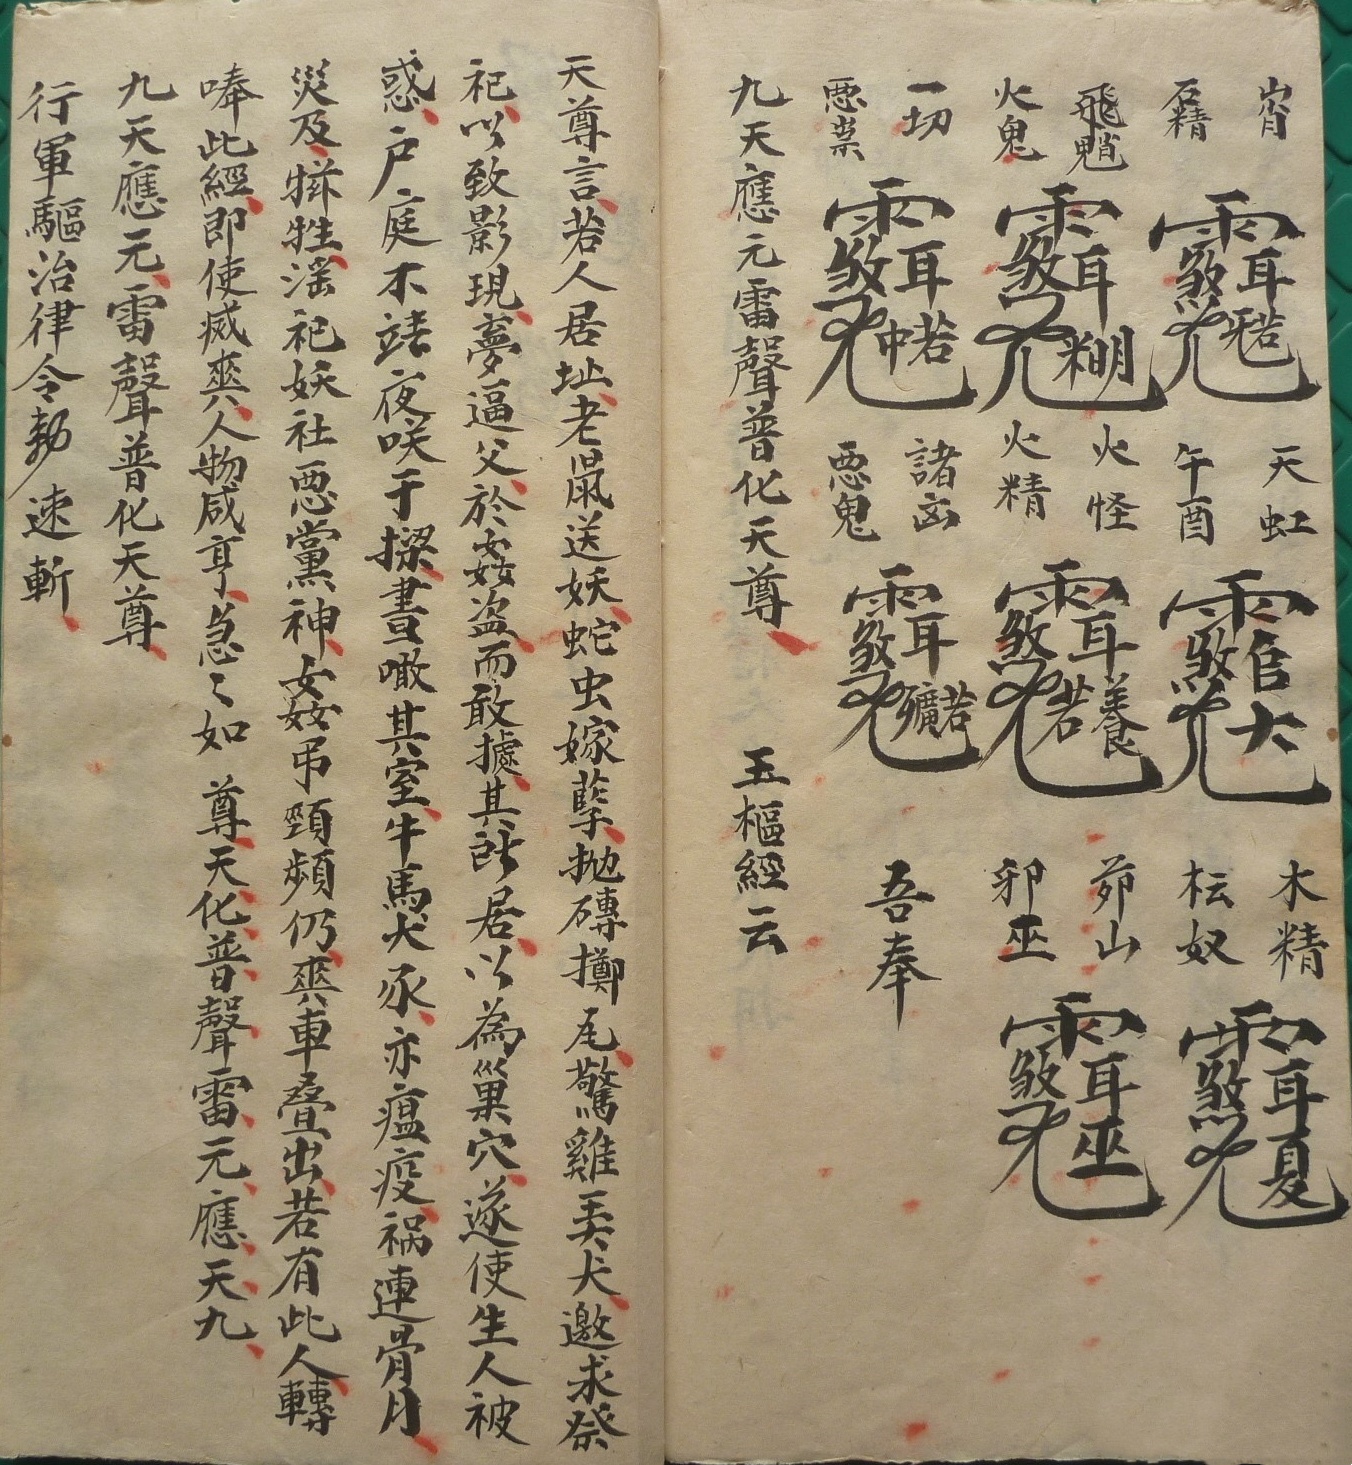 天虹
午酉
木精
枟奴
飛魈
火鬼
火怪
火精
茆山
邪巫
一切
惡祟
諸凶
惡鬼
吾奉
九天應元雷聲普化天尊 玉樞經云
天尊言若人居址老鼠送妖蛇虫嫁孽抛磚擲瓦驚雞弄犬邀求祭
祀以致影現夢逼父於姦盗而敢據其所居以為巢穴遂使生人被
惑户庭不靖夜咲于梁晝噉其室牛馬犬豕亦瘟疫禍連骨肉
災及牲滛祀妖社惡黨神姦吊頸頻仍爽車疊出若有此人轉
唪此經即使滅爽人物咸亨急〻如 尊天化普聲雷元應天九
九天應元雷聲普化天尊
行軍驅治律令勅 速斬